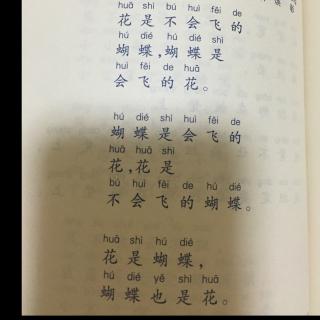 huā shì bú huì fēi de
花是不会飞的
hú dié hú dié shì
蝴蝶,蝴蝶是
huì fēi de huā
会飞的花。
hú dié shì huì fēi de
蝴蝶是会飞的
huā huā shì
花,花是
bú huì fēi de hú dié
不会飞的蝴蝶。
huā shì hú dié
花是蝴蝶,
hú dié yě shì huā
蝴蝶也是花。